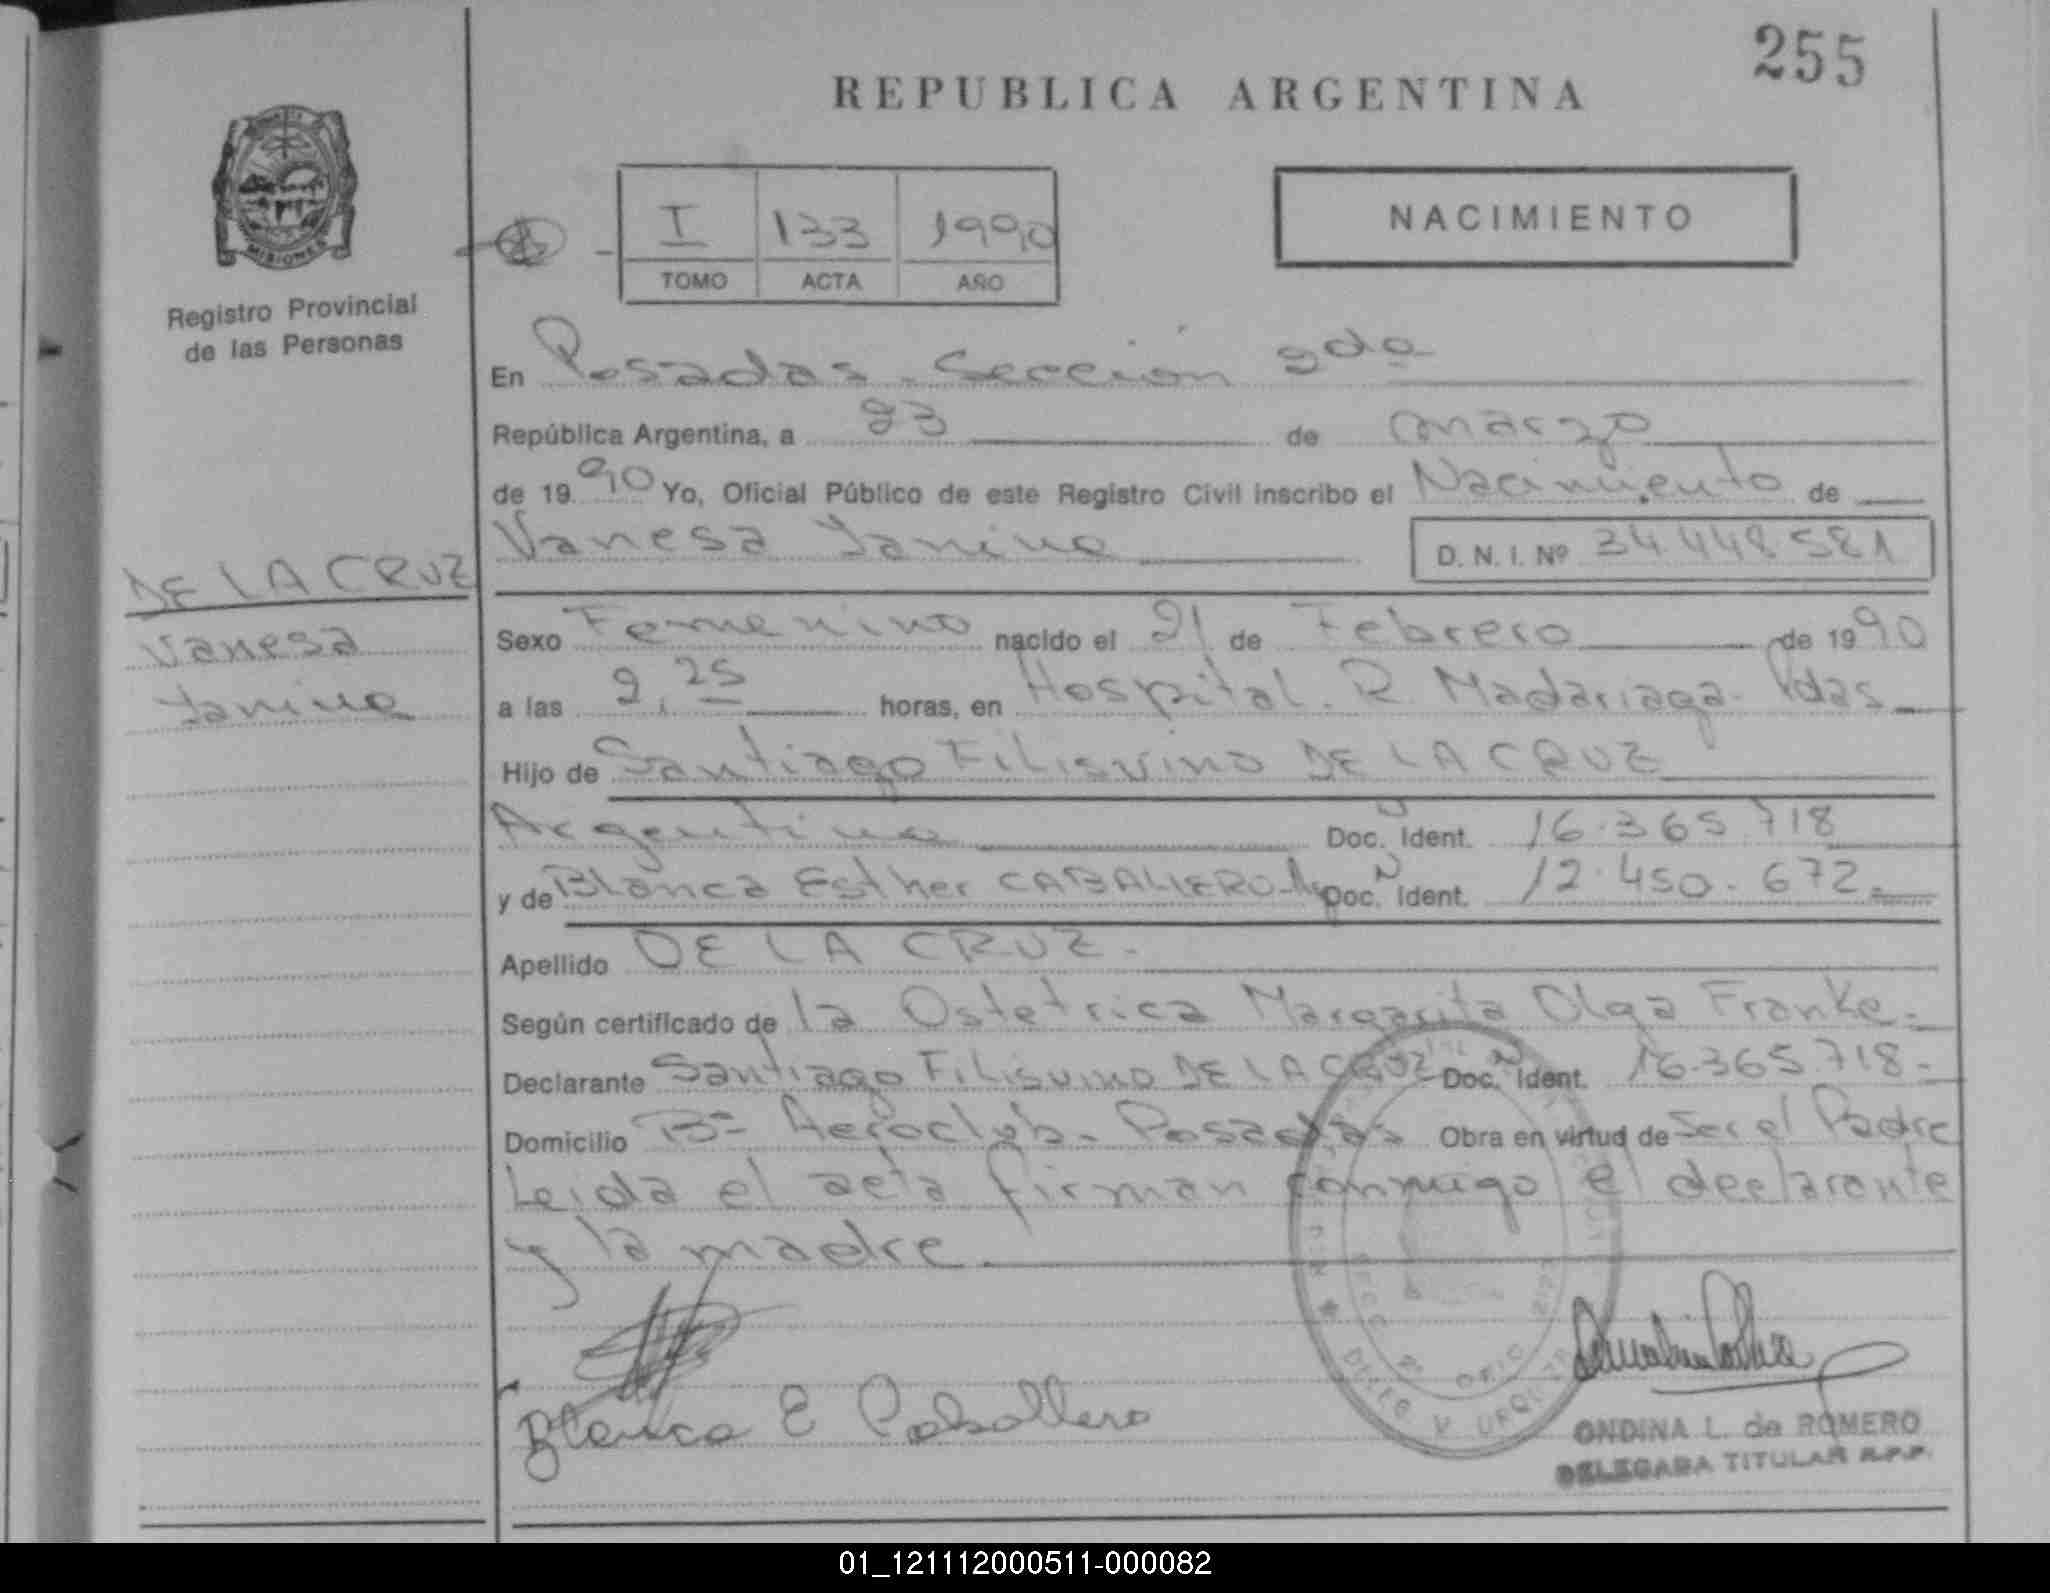 255
REPUBLICA ARGENTINA
MISIONES
Registro Provincial
de las Personas
I 133 1990
TOMO ACTA AÑO
NACIMIENTO
En Posadas - Sección 2da
República Argentina, a 23 de marzo
de 1990 Yo, Oficial Público de este Registro Civil inscribo el Nacimiento de
Vanesa Yanina D. N. I. Nº 34.448.521
DE LA CRUZ
Vanesa
Yanina
Sexo Femenino nacido el 21 de Febrero de 1990
a las 2,25 horas, en Hospital. R. Madariaga - Pdas
Hijo de Santiago Filisvino DE LA CRUZ
Argentina Doc. N Ident. 16.365.718
y de Blanca Esther CABALLERO Doc. N Ident. 12.450.672
Apellido DE LA CRUZ.
Según certificado de la Ostetrica Margarita Olga Franke.
Declarante Santiago Filisvino DE LA CRUZ Doc. N Ident. 16.365.718.
Domicilio Bº Aeroclub - Posadas Obra en virtud de Ser el Padre
Leida el acta firman conmigo el declarante
y la madre.
Blanca E Caballero
ONDINA L. de ROMERO
DELEGADA TITULAR R.P.P.
01_121112000511-000082